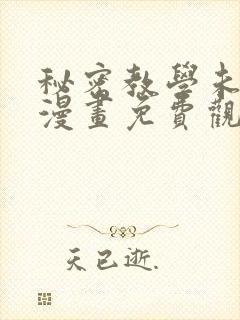 秘密教學未
漫畫免費觀
天已逝.